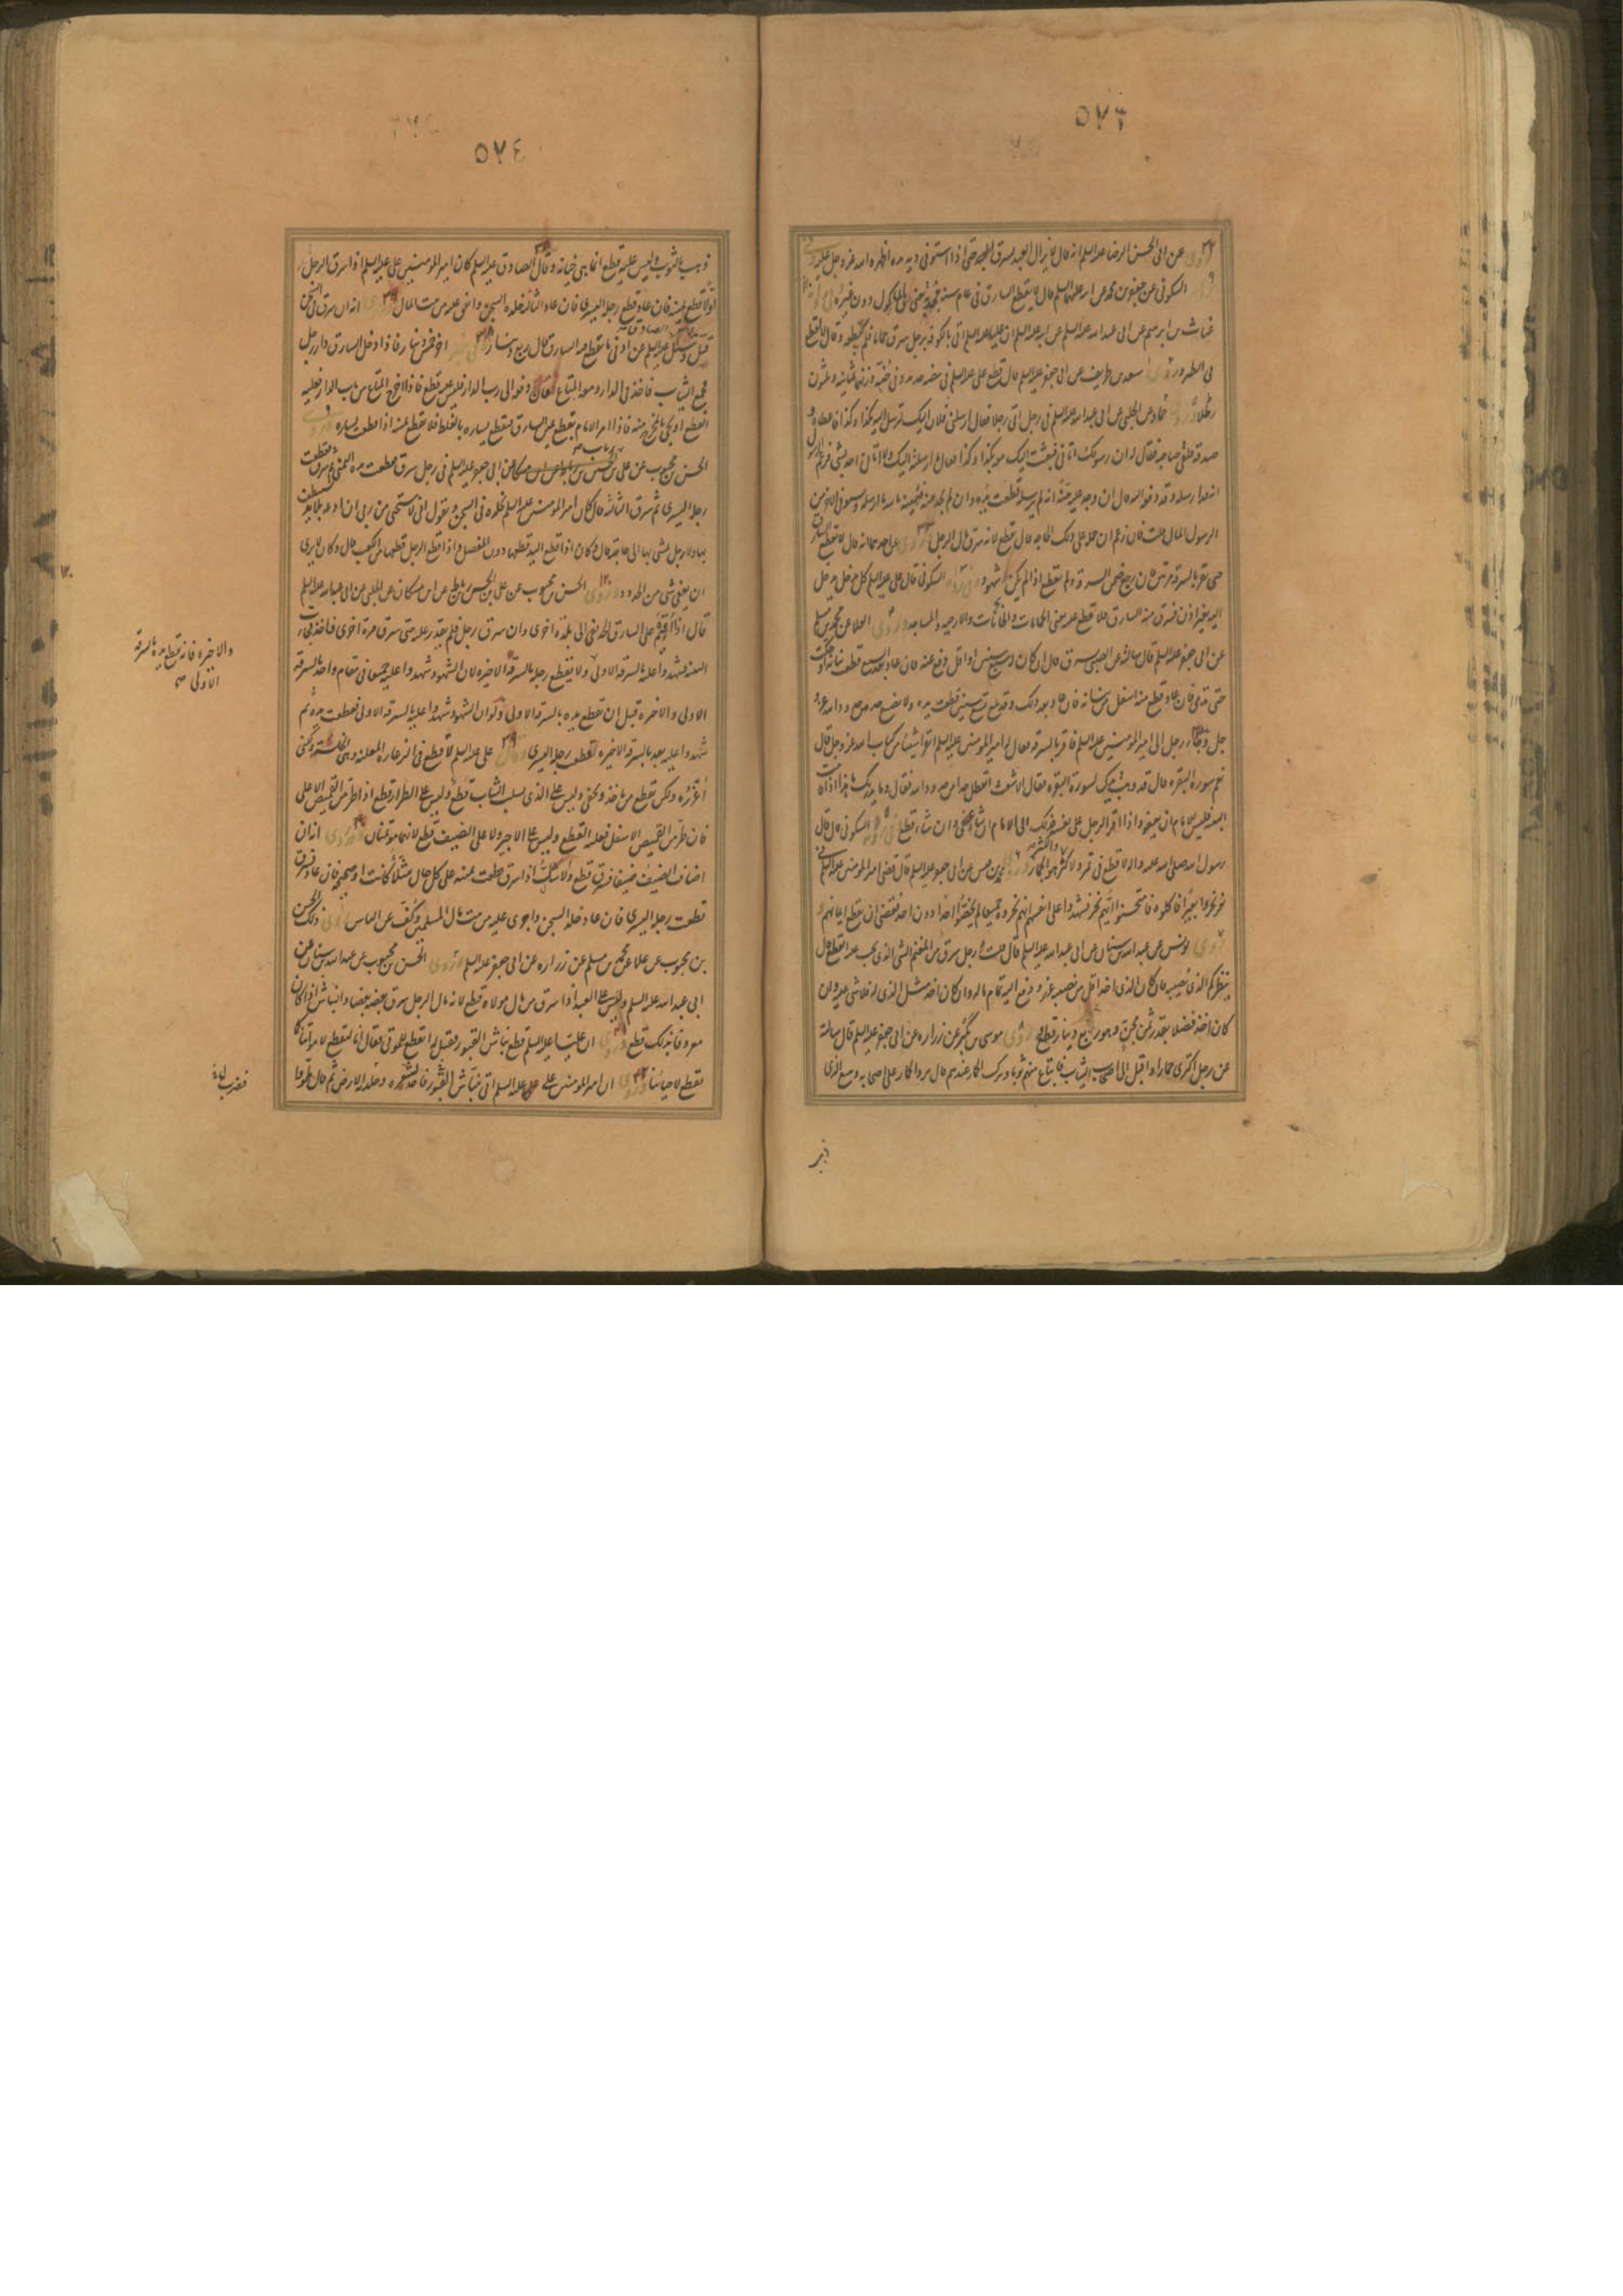 ٥٧٣
وروى عن ابى الحسن الرضا عليه السلم انه قال لا يزال العبد يسرق حتى اذا استوفى دية يده اظهره الله عز وجل عليه
السكونى عن جعفر بن محمد عن ابيه عليهما السلم قال لا يقطع السارق فى عام سنة مجدبة يعنى فى الماكول دون غيره
غياث بن ابرهيم عن ابى عبد الله عليه السلم عن ابيه عليه السلم ان عليا عليه السلم اتى بالكوفة برجل سرق حماما فلم يقطعه وقال لا اقطع
فى الطير وروى سعد بن طريف عن ابى جعفر عليه السلم قال قطع على عليه السلم فى بيضة حديد وفى جنة وزنها ثمانية وثلثون
رطلا وروى حماد عن الحلبى عن ابى عبد الله عليه السلم فى رجل اتى رجلا فقال ارسلنى فلان اليك لترسل اليه بكذا وكذا فاعطاه و
صدقه فلقى صاحبه فقال له ان رسولك اتانى فبعثت اليك معه بكذا وكذا فقال ما ارسلته اليك ولا اتانى احد بشى فزعم الرسول
انه قد ارسله وقد دفعه اليه قال ان وجد عليه بينة انه لم يرسله قطعت يده وان لم يجد بينة فيمينه بالله ما ارسله ويستوفى الاخر من
الرسول المال قلت فان زعم انه حمله على ذلك الحاجة قال يقطع لانه سرق مال الرجل
حتى يقر بالسرقة مرتين فان رجع ضمن السرقة ولم يقطع اذا لم يكن شهود السكونى قال على عليه السلم كل مدخل يدخل
اليه بغير اذن فسرق منه السارق فلا قطع عليه يعنى الحمامات والخانات والارحية والمساجد وروى العلا عن محمد بن مسلم
عن ابى جعفر عليه السلم قال سالته عن الصبى يسرق قال ان كان له سبع سنين او اقل رفع عنه فان عاد بعد السبع قطعت بنانه او حكت
حتى تدمى فان عاد قطع منه اسفل من بنانه فان عاد بعد ذلك وقد بلغ تسع سنين قطعت يده ولا يضيع حد من حدود الله عز و
جل وجاء رجل الى امير المومنين عليه السلم فاقر بالسرقة فقال له امير المومنين عليه السلم اتقرا شيئا من كتاب الله عز وجل قال
نعم سورة البقرة قال قد وهبت يدك لسورة البقرة فقال الاشعث اتعطل حدا من حدود الله فقال وما يدريك ما هذا اذا قامت
البينة فليس للامام ان يعفو واذا اقر الرجل على نفسه فذلك الى الامام ان شاء عفى وان شاء قطع السكونى قال قال
رسول الله صلى الله عليه واله لا قطع فى ثمر ولا كثر والكثر هو الجمار وروى محمد بن قيس عن ابى جعفر عليه السلم قال قضى امير المومنين عليه السلم فى
نفر نحروا بعيرا فاكلوه فامتحنوا ايهم نحر فشهدوا على انفسهم انهم نحروه جميعا لم يخصوا احدا دون احد فقضى ان تقطع ايمانهم
وروى يونس عن عبد الله بن سنان عن ابى عبد الله عليه السلم قال قلت رجل سرق من المغنم الشى الذى يجب عليه القطع قال
ينظر كم الذى يصيبه فان كان الذى اخذ اقل من نصيبه عزر ودفع اليه تمام ماله وان كان اخذ مثل الذى له فلا شى عليه وان
كان اخذ فضلا بقدر ثمن مجن وهو ربع دينار قطع وروى موسى بن بكر عن زراره عن ابى جعفر عليه السلم قال سالته
عن رجل اكترى حمارا واقبل الى اصحاب الثياب فابتاع منهم ثوبا وترك الحمار عندهم قال يرد الحمار على صاحبه ويتبع الذى
٥٧٤
ذهب بالثوب وليس عليه قطع انما هى خيانة وقال الصادق عليه السلم كان امير المومنين على عليه السلم اذا سرق الرجل
اولا قطع يمينه فان عاد قطع رجله اليسرى فان عاد الثالثة خلده السجن وانفق عليه من بيت المال انه ان سرق فى السجن
قتل وسئل الصادق عليه السلم عن ادنى ما يقطع فيه السارق فقال ربع دينار او خمس دينار فاذا دخل السارق دار رجل
فجمع الثياب فاخذ فى الدار ومعه المتاع فقال دفعه الى رب الدار فليس عليه قطع فاذا خرج المتاع من باب الدار فعليه
القطع او يجى بالمخرج منه فاذا امر الامام بقطع يمين السارق فقطع يساره بالغلط فلا يقطع يمينه اذا قطعت يساره
الحسن بن محبوب عن على بن الحسن بن رباط عن ابن مسكان عن ابى جعفر عليه السلم فى رجل سرق فقطعت يده اليمنى ثم سرق فقطعت
رجله اليسرى ثم سرق الثالثة قال كان امير المومنين عليه السلم يخلده فى السجن ويقول انى لاستحيى من ربى ان ادعه بلا يد يستنظف
بها ولا رجل يمشى بها الى حاجته قال وكان اذا قطع اليد قطعها دون المفصل واذا قطع الرجل قطعها من الكعب قال وكان لا يرى
ان يعفى شى من الحدود وروى الحسن بن محبوب عن على بن الحسن بن رباط عن ابن مسكان عن الحلبى عن ابى عبد الله عليه السلم
قال اذا اقيم على السارق الحد نفى الى بلدة اخرى وان سرق رجل فلم يقدر عليه حتى سرق مرة اخرى فاخذ فجاءت
البينة فشهدوا عليه بالسرقة الاولى ولا يقطع رجله بالسرقة الاخيرة لان الشهود شهدوا عليه جميعا فى مقام واحد بالسرقة
الاولى والاخرة قبل ان تقطع يده بالسرقة الاولى ولو ان الشهود شهدوا عليه بالسرقة الاولى فقطعت يده ثم
شهدوا عليه بعد بالسرقة الاخيرة لقطعت رجله اليسرى وقال على عليه السلم لا قطع فى الدغارة المعلنة وهى الخلسة ولكنى
اعزره ولكن تقطع من ياخذ ويخفى وليس على الذى يسلب الثياب قطع وليس على الطرار قطع اذا طر من القميص الاعلى
فان طر من القميص الاسفل فعليه القطع وليس على الاجير ولا على الضيف قطع لانهما مؤتمنان وروى انه ان
اضاف الضيف ضيفا فسرق قطع والاشل اذا سرق قطعت يمينه على كل حال شلاء كانت او صحيحة فان عاد فسرق
قطعت رجله اليسرى فان عاد خلد السجن واجرى عليه من بيت مال المسلمين وكف عن الناس روى ذلك الحسن
بن محبوب عن علا عن محمد بن مسلم عن زراره عن ابى جعفر عليه السلم وروى الحسن بن محبوب عن عبد الله بن سنان عن
ابى عبد الله عليه السلم وليس على العبد اذا سرق من مال مولاه قطع لانه مال الرجل سرق بعضه بعضا والنباش اذا كان
معروفا بذلك قطع وروى ان عليا عليه السلم قطع نباش القبور فقيل له اتقطع للموتى فقال انا لنقطع لامواتنا كما
نقطع لاحيائنا وروى ان امير المومنين على عليه السلم اتى بنباش القبور فاخذ بشعره وجلد به الارض ثم قال طؤوا
والاخيرة فانه تقطع يده بالسرقة
الاولى صح